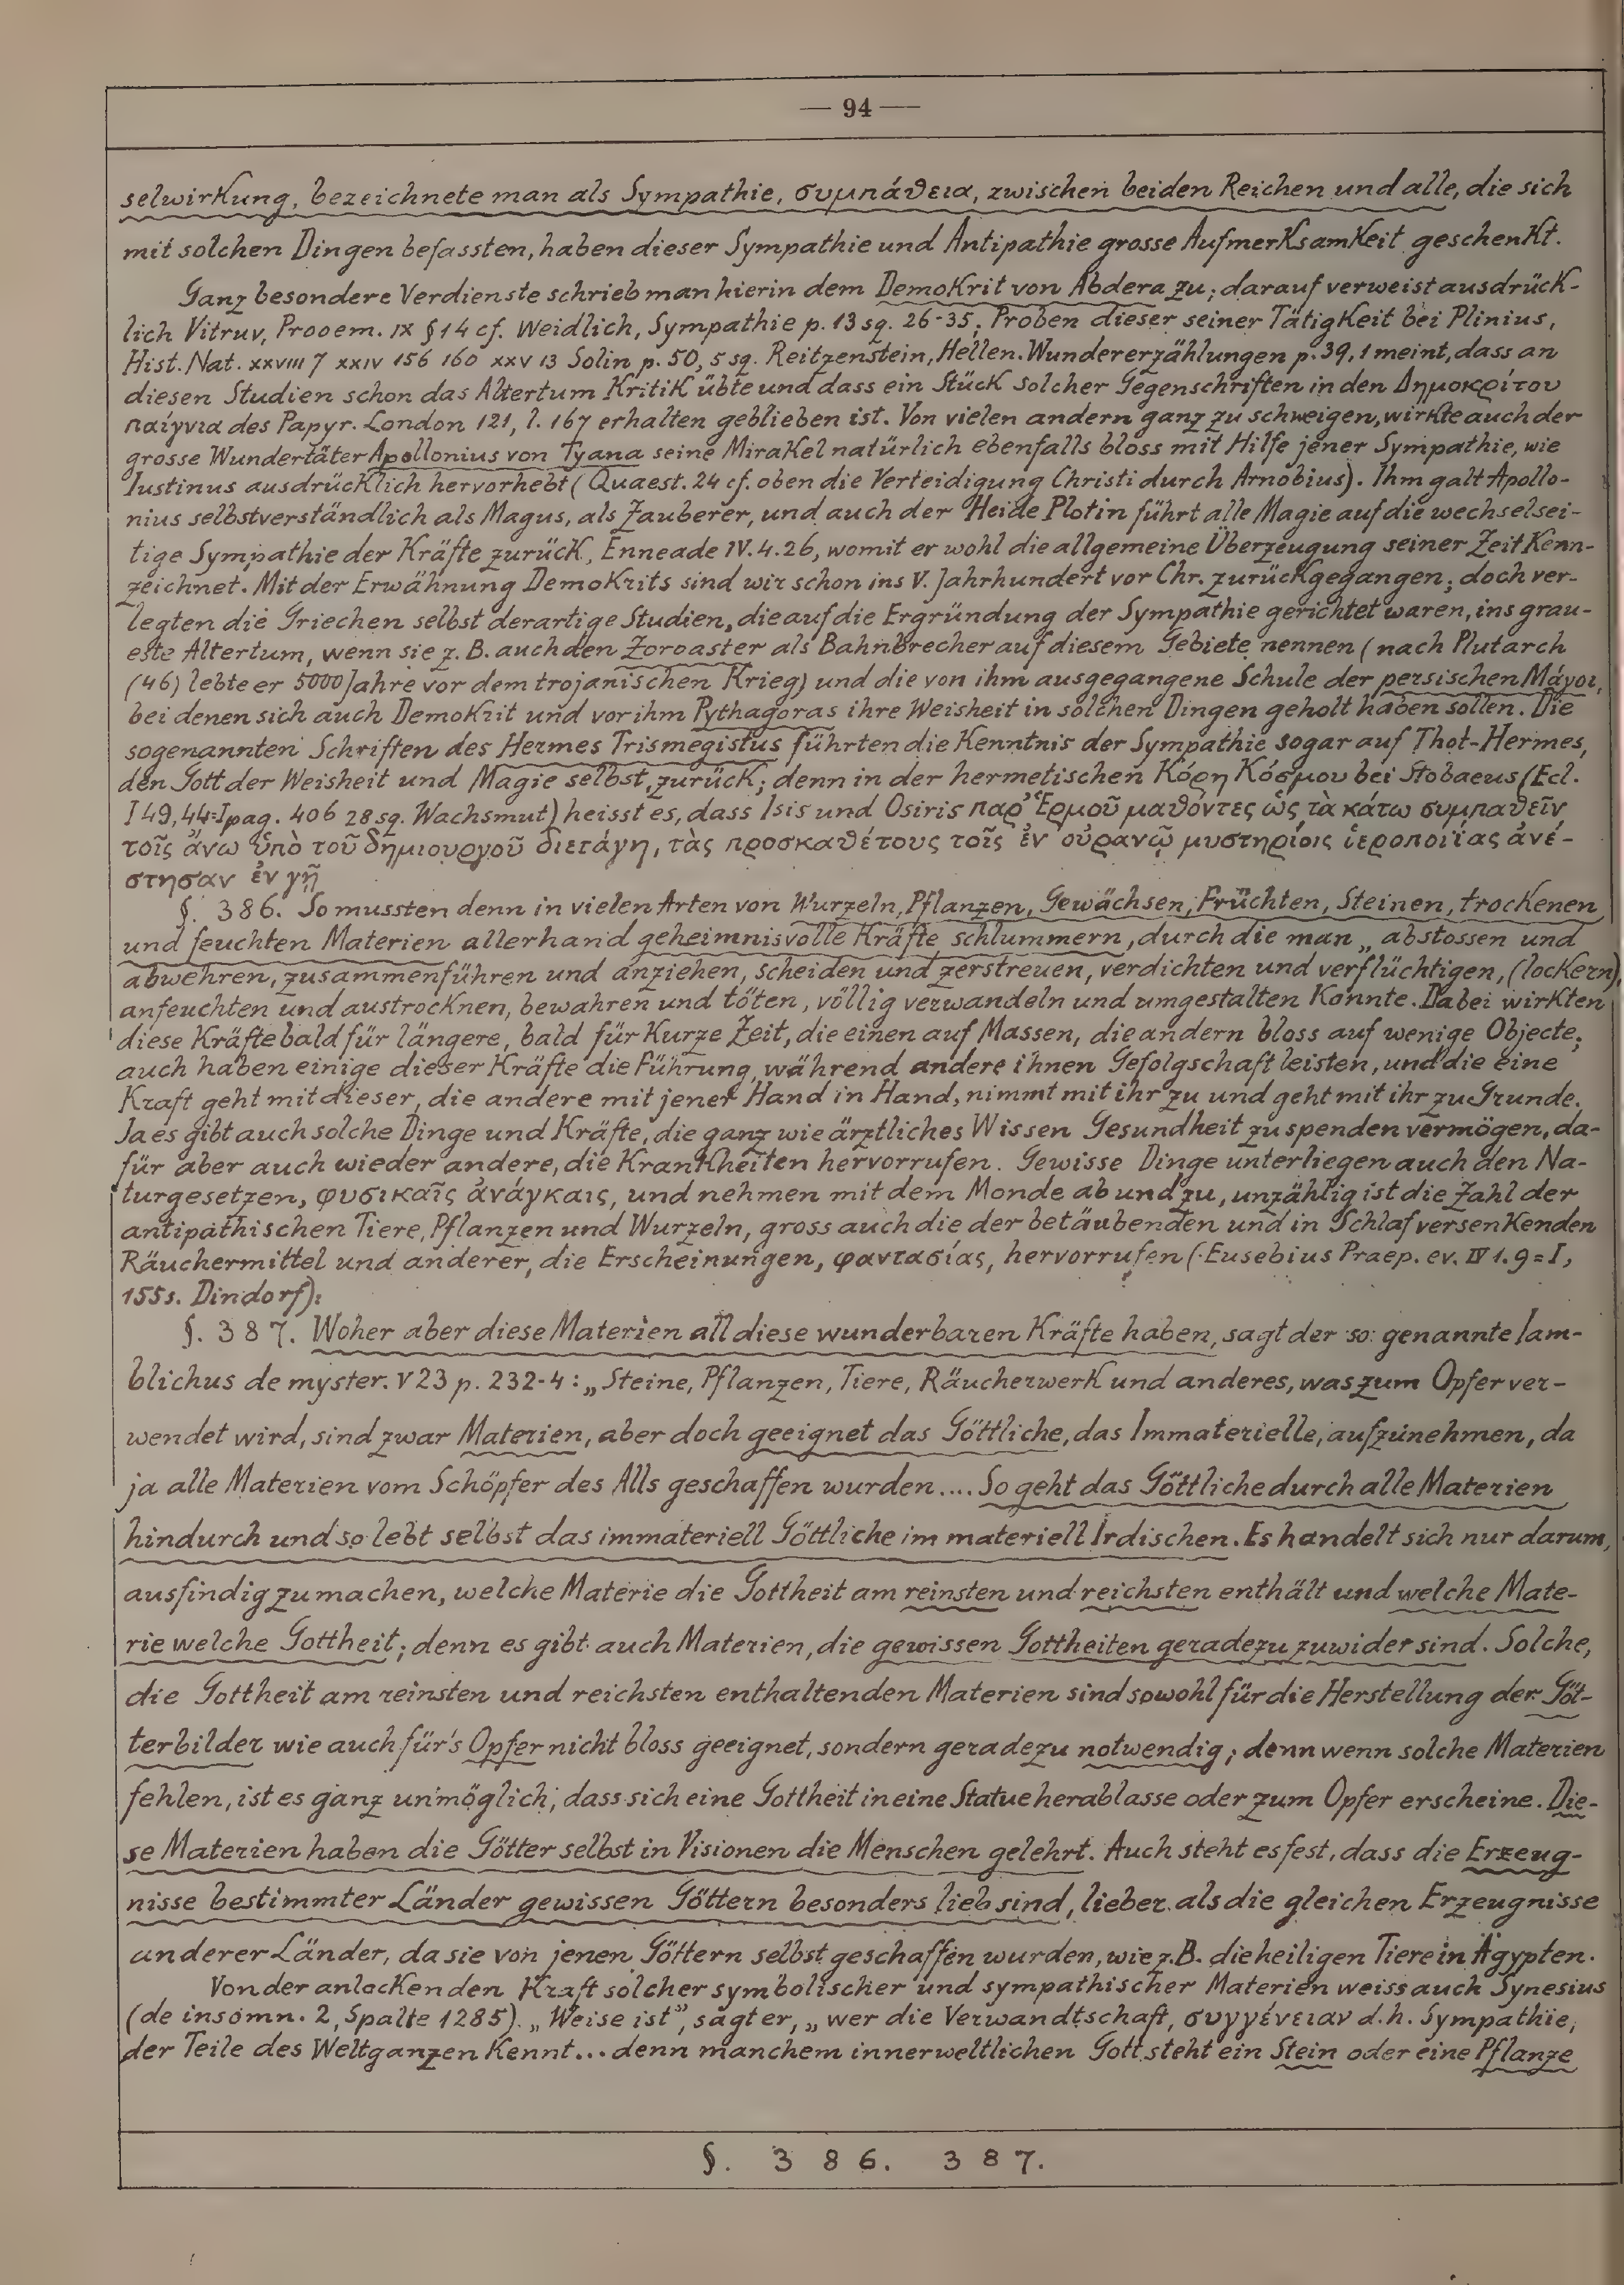 — 94 —
selwirkung, bezeichnete man als Sympathie, συμπάθεια, zwischen beiden Reichen und alle, die sich
mit solchen Dingen befassten, haben dieser Sympathie und Antipathie grosse Aufmerksamkeit geschenkt.
Ganz besondere Verdienste schrieb man hierin dem Demokrit von Abdera zu; darauf verweist ausdrück-
lich Vitruv, Prooem. IX § 14 cf. Weidlich, Sympathie p. 13 sq. 26-35. Proben dieser seiner Tätigkeit bei Plinius,
Hist. Nat. XXVIII 7 XXIV 156 160 XXV 13 Solin p. 50, 5 sq. Reitzenstein, Hellen. Wundererzählungen p. 39, 1 meint, dass an
diesen Studien schon das Altertum Kritik übte und dass ein Stück solcher Gegenschriften in den Δημοκρίτου
παίγνια des Papyr. London 121, l. 167 erhalten geblieben ist. Von vielen andern ganz zu schweigen, wirkte auch der
grosse Wundertäter Apollonius von Tyana seine Mirakel natürlich ebenfalls bloss mit Hilfe jener Sympathie, wie
Iustinus ausdrücklich hervorhebt (Quaest. 24 cf. oben die Verteidigung Christi durch Arnobius). Ihm galt Apollo-
nius selbstverständlich als Magus, als Zauberer, und auch der Heide Plotin führt alle Magie auf die wechselsei-
tige Sympathie der Kräfte zurück, Enneade IV. 4. 26, womit er wohl die allgemeine Überzeugung seiner Zeit kenn-
zeichnet. Mit der Erwähnung Demokrits sind wir schon ins V. Jahrhundert vor Chr. zurückgegangen; doch ver-
legten die Griechen selbst derartige Studien, die auf die Ergründung der Sympathie gerichtet waren, ins grau-
este Altertum, wenn sie z. B. auch den Zoroaster als Bahnbrecher auf diesem Gebiete nennen (nach Plutarch
(46) lebte er 5000 Jahre vor dem trojanischen Krieg) und die von ihm ausgegangene Schule der persischen Μάγοι,
bei denen sich auch Demokrit und vor ihm Pythagoras ihre Weisheit in solchen Dingen geholt haben sollen. Die
sogenannten Schriften des Hermes Trismegistus führten die Kenntnis der Sympathie sogar auf Thot-Hermes,
den Gott der Weisheit und Magie selbst, zurück; denn in der hermetischen Κόρη Κόσμου bei Stobaeus (Ecl.
I 49, 44=I pag. 406 28 sq. Wachsmut) heisst es, dass Isis und Osiris παρ' Ἑρμοῦ μαθόντες ὡς τὰ κάτω συμπαθεῖν
τοῖς ἄνω ὑπὸ τοῦ δημιουργοῦ διετάγη, τὰς προσκαθέτους τοῖς ἐν οὐρανῷ μυστηρίοις ἱεροποιΐας ἀνέ-
στησαν ἐν γῇ
§. 386. So mussten denn in vielen Arten von Wurzeln, Pflanzen, Gewächsen, Früchten, Steinen, trockenen
und feuchten Materien allerhand geheimnisvolle Kräfte schlummern, durch die man „abstossen und
abwehren, zusammenführen und anziehen, scheiden und zerstreuen, verdichten und verflüchtigen, (lockern),
anfeuchten und austrocknen, bewahren und töten, völlig verwandeln und umgestalten konnte. Dabei wirkten
diese Kräfte bald für längere, bald für kurze Zeit, die einen auf Massen, die andern bloss auf wenige Objecte;
auch haben einige dieser Kräfte die Führung, während andere ihnen Gefolgschaft leisten, und die eine
Kraft geht mit dieser, die andere mit jener Hand in Hand, nimmt mit ihr zu und geht mit ihr zu Grunde.
Ja es gibt auch solche Dinge und Kräfte, die ganz wie ärztliches Wissen Gesundheit zu spenden vermögen, da-
für aber auch wieder andere, die Krankheiten hervorrufen. Gewisse Dinge unterliegen auch den Na-
turgesetzen, φυσικαῖς ἀνάγκαις, und nehmen mit dem Monde ab und zu, unzählig ist die Zahl der
antipathischen Tiere, Pflanzen und Wurzeln, gross auch die der betäubenden und in Schlaf versenkenden
Räuchermittel und anderer, die Erscheinungen, φαντασίας, hervorrufen (Eusebius Praep. ev. IV 1. 9 = I,
155 s. Dindorf):
§. 387. Woher aber diese Materien all diese wunderbaren Kräfte haben, sagt der so genannte Iam-
blichus de myster. V 23 p. 232-4: „Steine, Pflanzen, Tiere, Räucherwerk und anderes, was zum Opfer ver-
wendet wird, sind zwar Materien, aber doch geeignet das Göttliche, das Immaterielle, aufzunehmen, da
ja alle Materien vom Schöpfer des Alls geschaffen wurden.... So geht das Göttliche durch alle Materien
hindurch und so lebt selbst das immateriell Göttliche im materiell Irdischen. Es handelt sich nur darum,
ausfindig zu machen, welche Materie die Gottheit am reinsten und reichsten enthält und welche Mate-
rie welche Gottheit; denn es gibt auch Materien, die gewissen Gottheiten geradezu zuwider sind. Solche,
die Gottheit am reinsten und reichsten enthaltenden Materien sind sowohl für die Herstellung der Göt-
terbilder wie auch für's Opfer nicht bloss geeignet, sondern geradezu notwendig; denn wenn solche Materien
fehlen, ist es ganz unmöglich, dass sich eine Gottheit in eine Statue herablasse oder zum Opfer erscheine. Die-
se Materien haben die Götter selbst in Visionen die Menschen gelehrt. Auch steht es fest, dass die Erzeug-
nisse bestimmter Länder gewissen Göttern besonders lieb sind, lieber als die gleichen Erzeugnisse
anderer Länder, da sie von jenen Göttern selbst geschaffen wurden, wie z. B. die heiligen Tiere in Ägypten.
Von der anlockenden Kraft solcher symbolischer und sympathischer Materien weiss auch Synesius
(de insomn. 2, Spalte 1285). „Weise ist", sagt er, „wer die Verwandtschaft, συγγένειαν d. h. Sympathie,
der Teile des Weltganzen kennt... denn manchem innerweltlichen Gott steht ein Stein oder eine Pflanze
§. 386. 387.